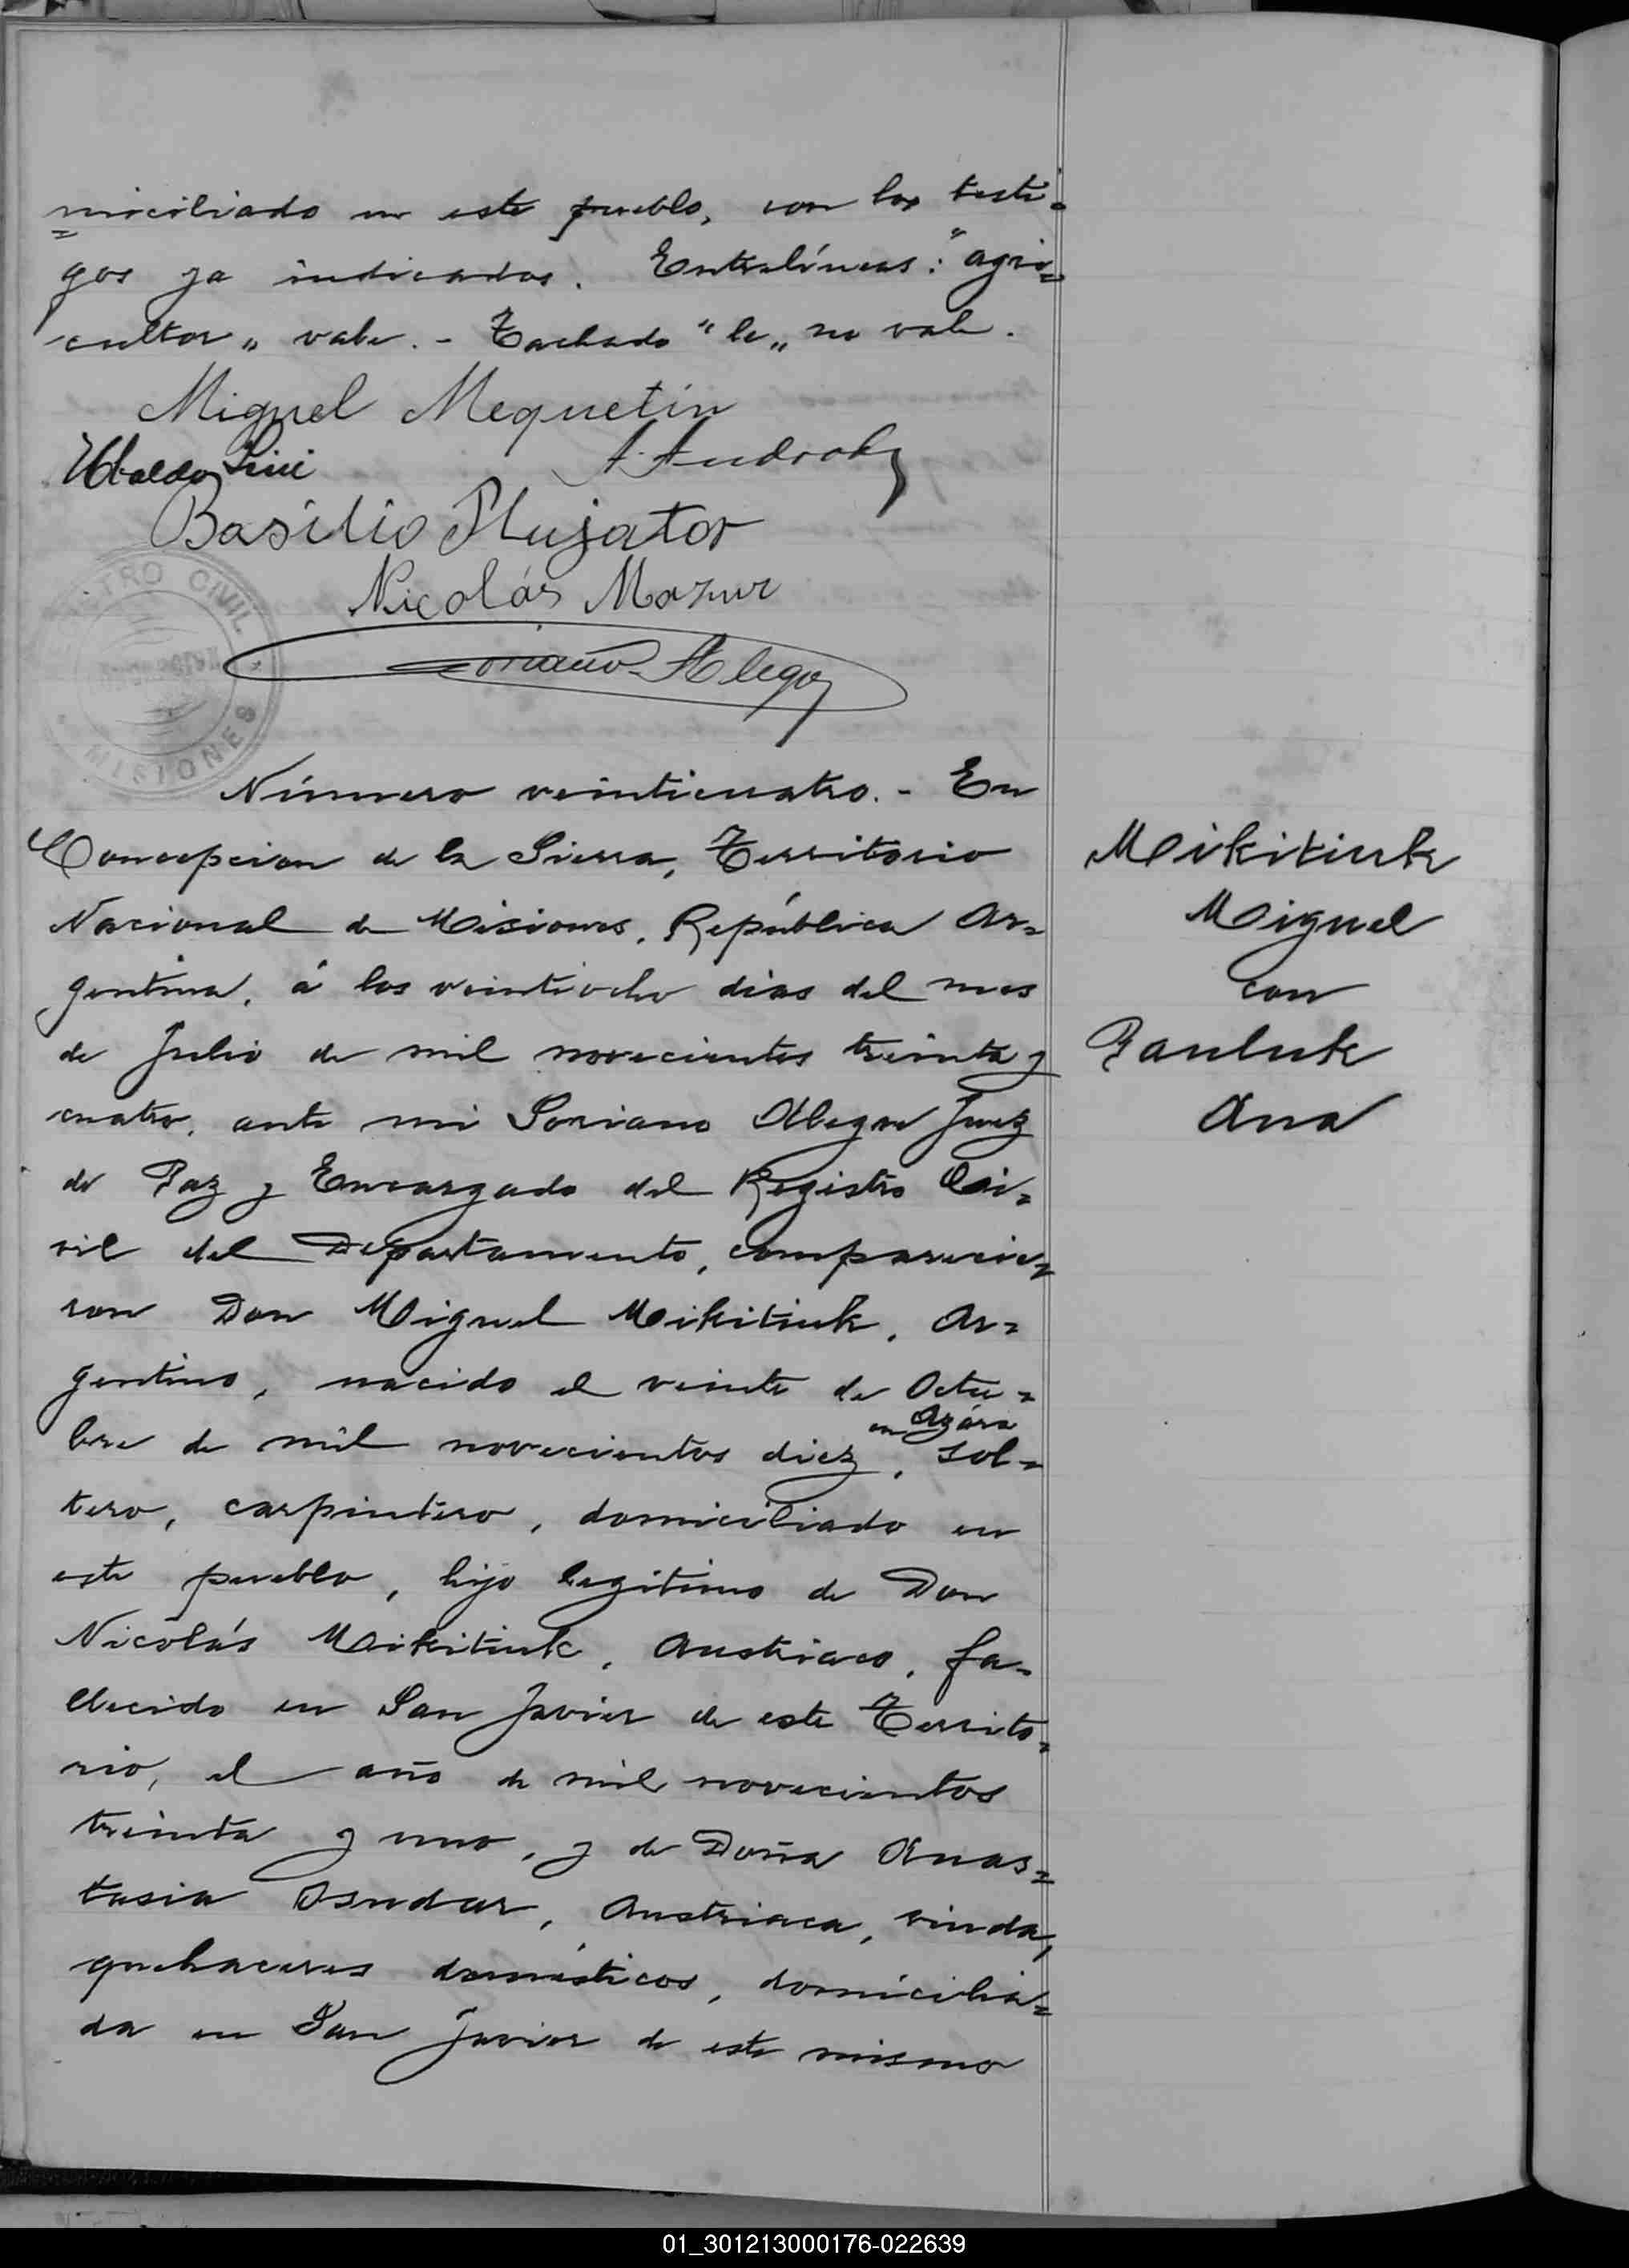 miciliado en este pueblo, con los testi=
gos ya indicados. Entrelíneas: "agri=
cultor" vale. - Tachado "le" no vale.
Miguel Mequetin
Ubaldo
Basilio Hujator
Nicolás Mazur
Soriano Alegre
REGISTRO CIVIL
MISIONES
Número veinticuatro. - En
Concepcion de la Sierra, Territorio
Nacional de Misiones, República Ar=
gentina, á los veintiocho dias del mes
de Julio de mil novecientos treinta y
cuatro, ante mi Soriano Alegre Juez
de Paz y Encargado del Registro Ci=
vil del Departamento, comparecie=
ron Don Miguel Mikitiuk, Ar=
gentino, nacido el veinte de Octu=
en Azára
bre de mil novecientos diez, sol=
tero, carpintero, domiciliado en
este pueblo, hijo legitimo de Don
Nicolás Mikitiuk, Austriaco, fa=
llecido en San Javier de este Territo=
rio, el año de mil novecientos
treinta y uno, y de Doña Anas=
tasia Osudar, Austriaca, viuda,
quehaceres domésticos, domicilia=
da en San Javier de este mismo
Mikitiuk
Miguel
con
Pauluk
Ana
01_301213000176-022639